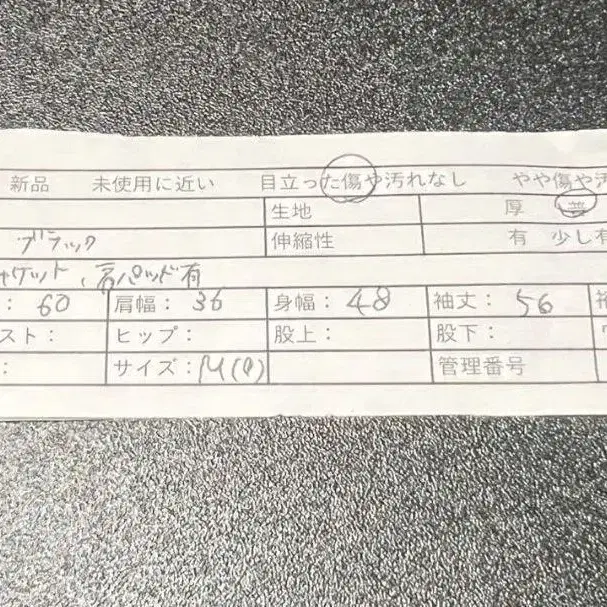 新品 未使用に近い 目立った傷や汚れなし やや傷や汚
生地 厚 普
ブラック 伸縮性 有 少し有
ケット、肩パッド有
: 60 肩幅: 36 身幅: 48 袖丈: 56
スト: ヒップ: 股上: 股下:
: サイズ: M(9) 管理番号